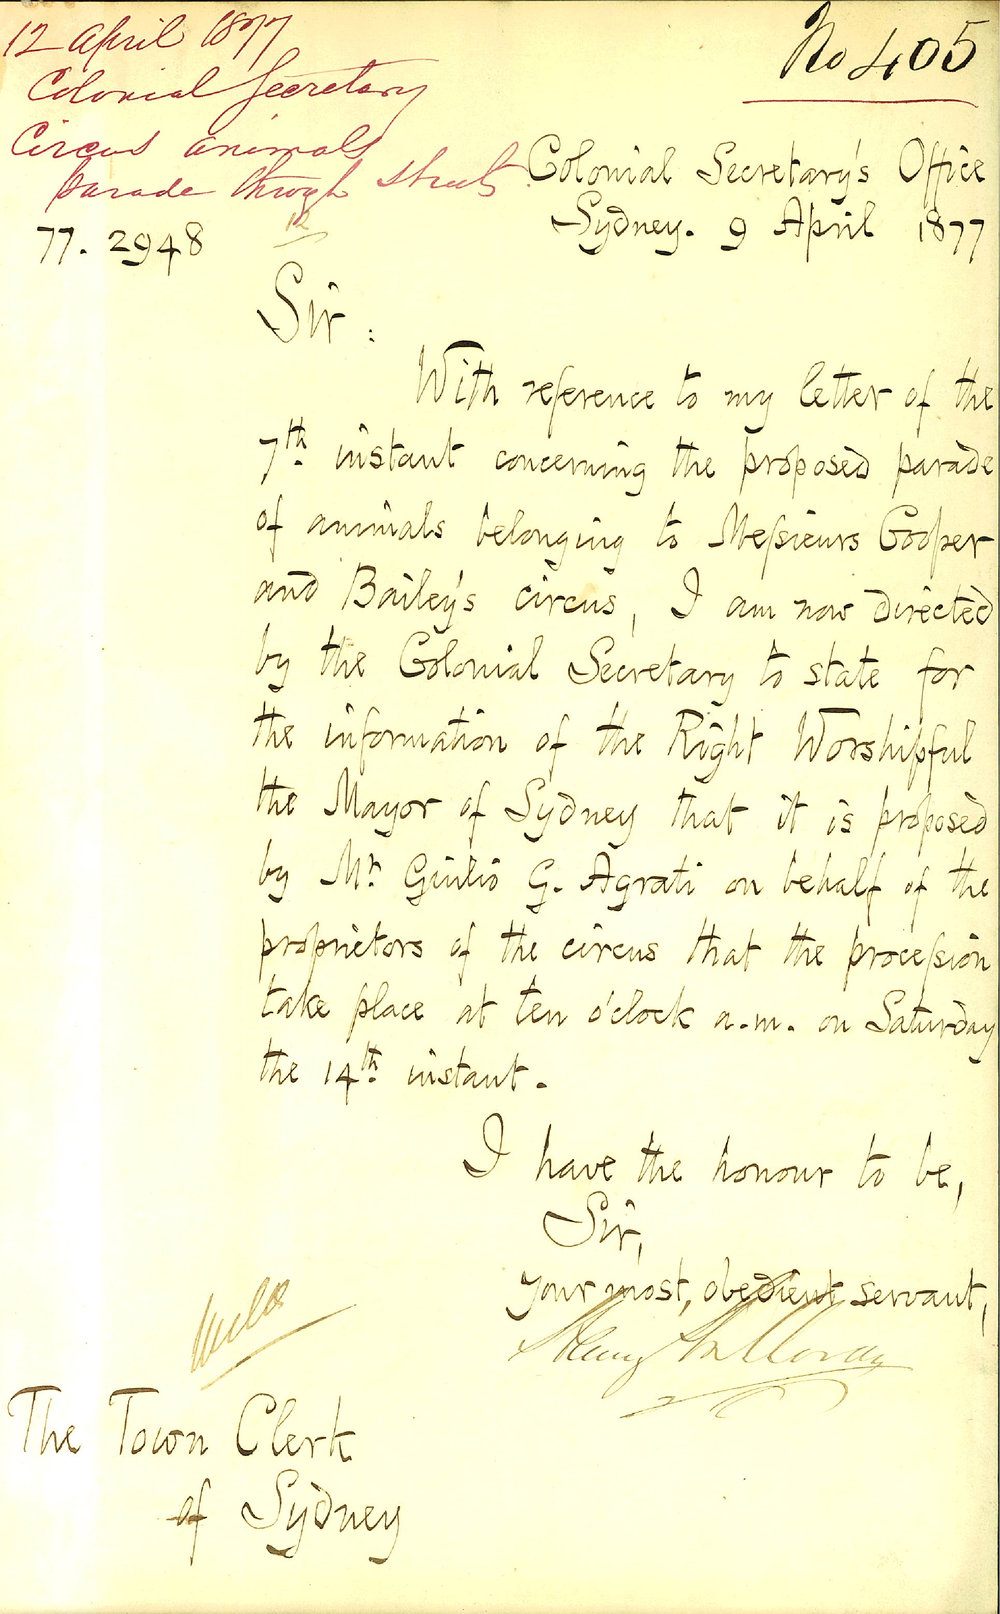 12 April 1877
Colonial Secretary
Circus animals
parade through streets.
No 405
Colonial Secretary's Office
Sydney. 9 April 1877
77. 2948
12
Sir:
With reference to my letter of the
7th. instant concerning the proposed parade
of animals belonging to Messieurs Cooper
and Bailey's circus, I am now directed
by the Colonial Secretary to state for
the information of the Right Worshipful
the Mayor of Sydney that it is proposed
by Mr. Giulio G. Agrati on behalf of the
proprietors of the circus that the procession
take place at ten o'clock a.m. on Saturday
the 14th. instant.
I have the honour to be,
Sir,
your most, obedient servant,
Henry Halloran
The Town Clerk
of Sydney